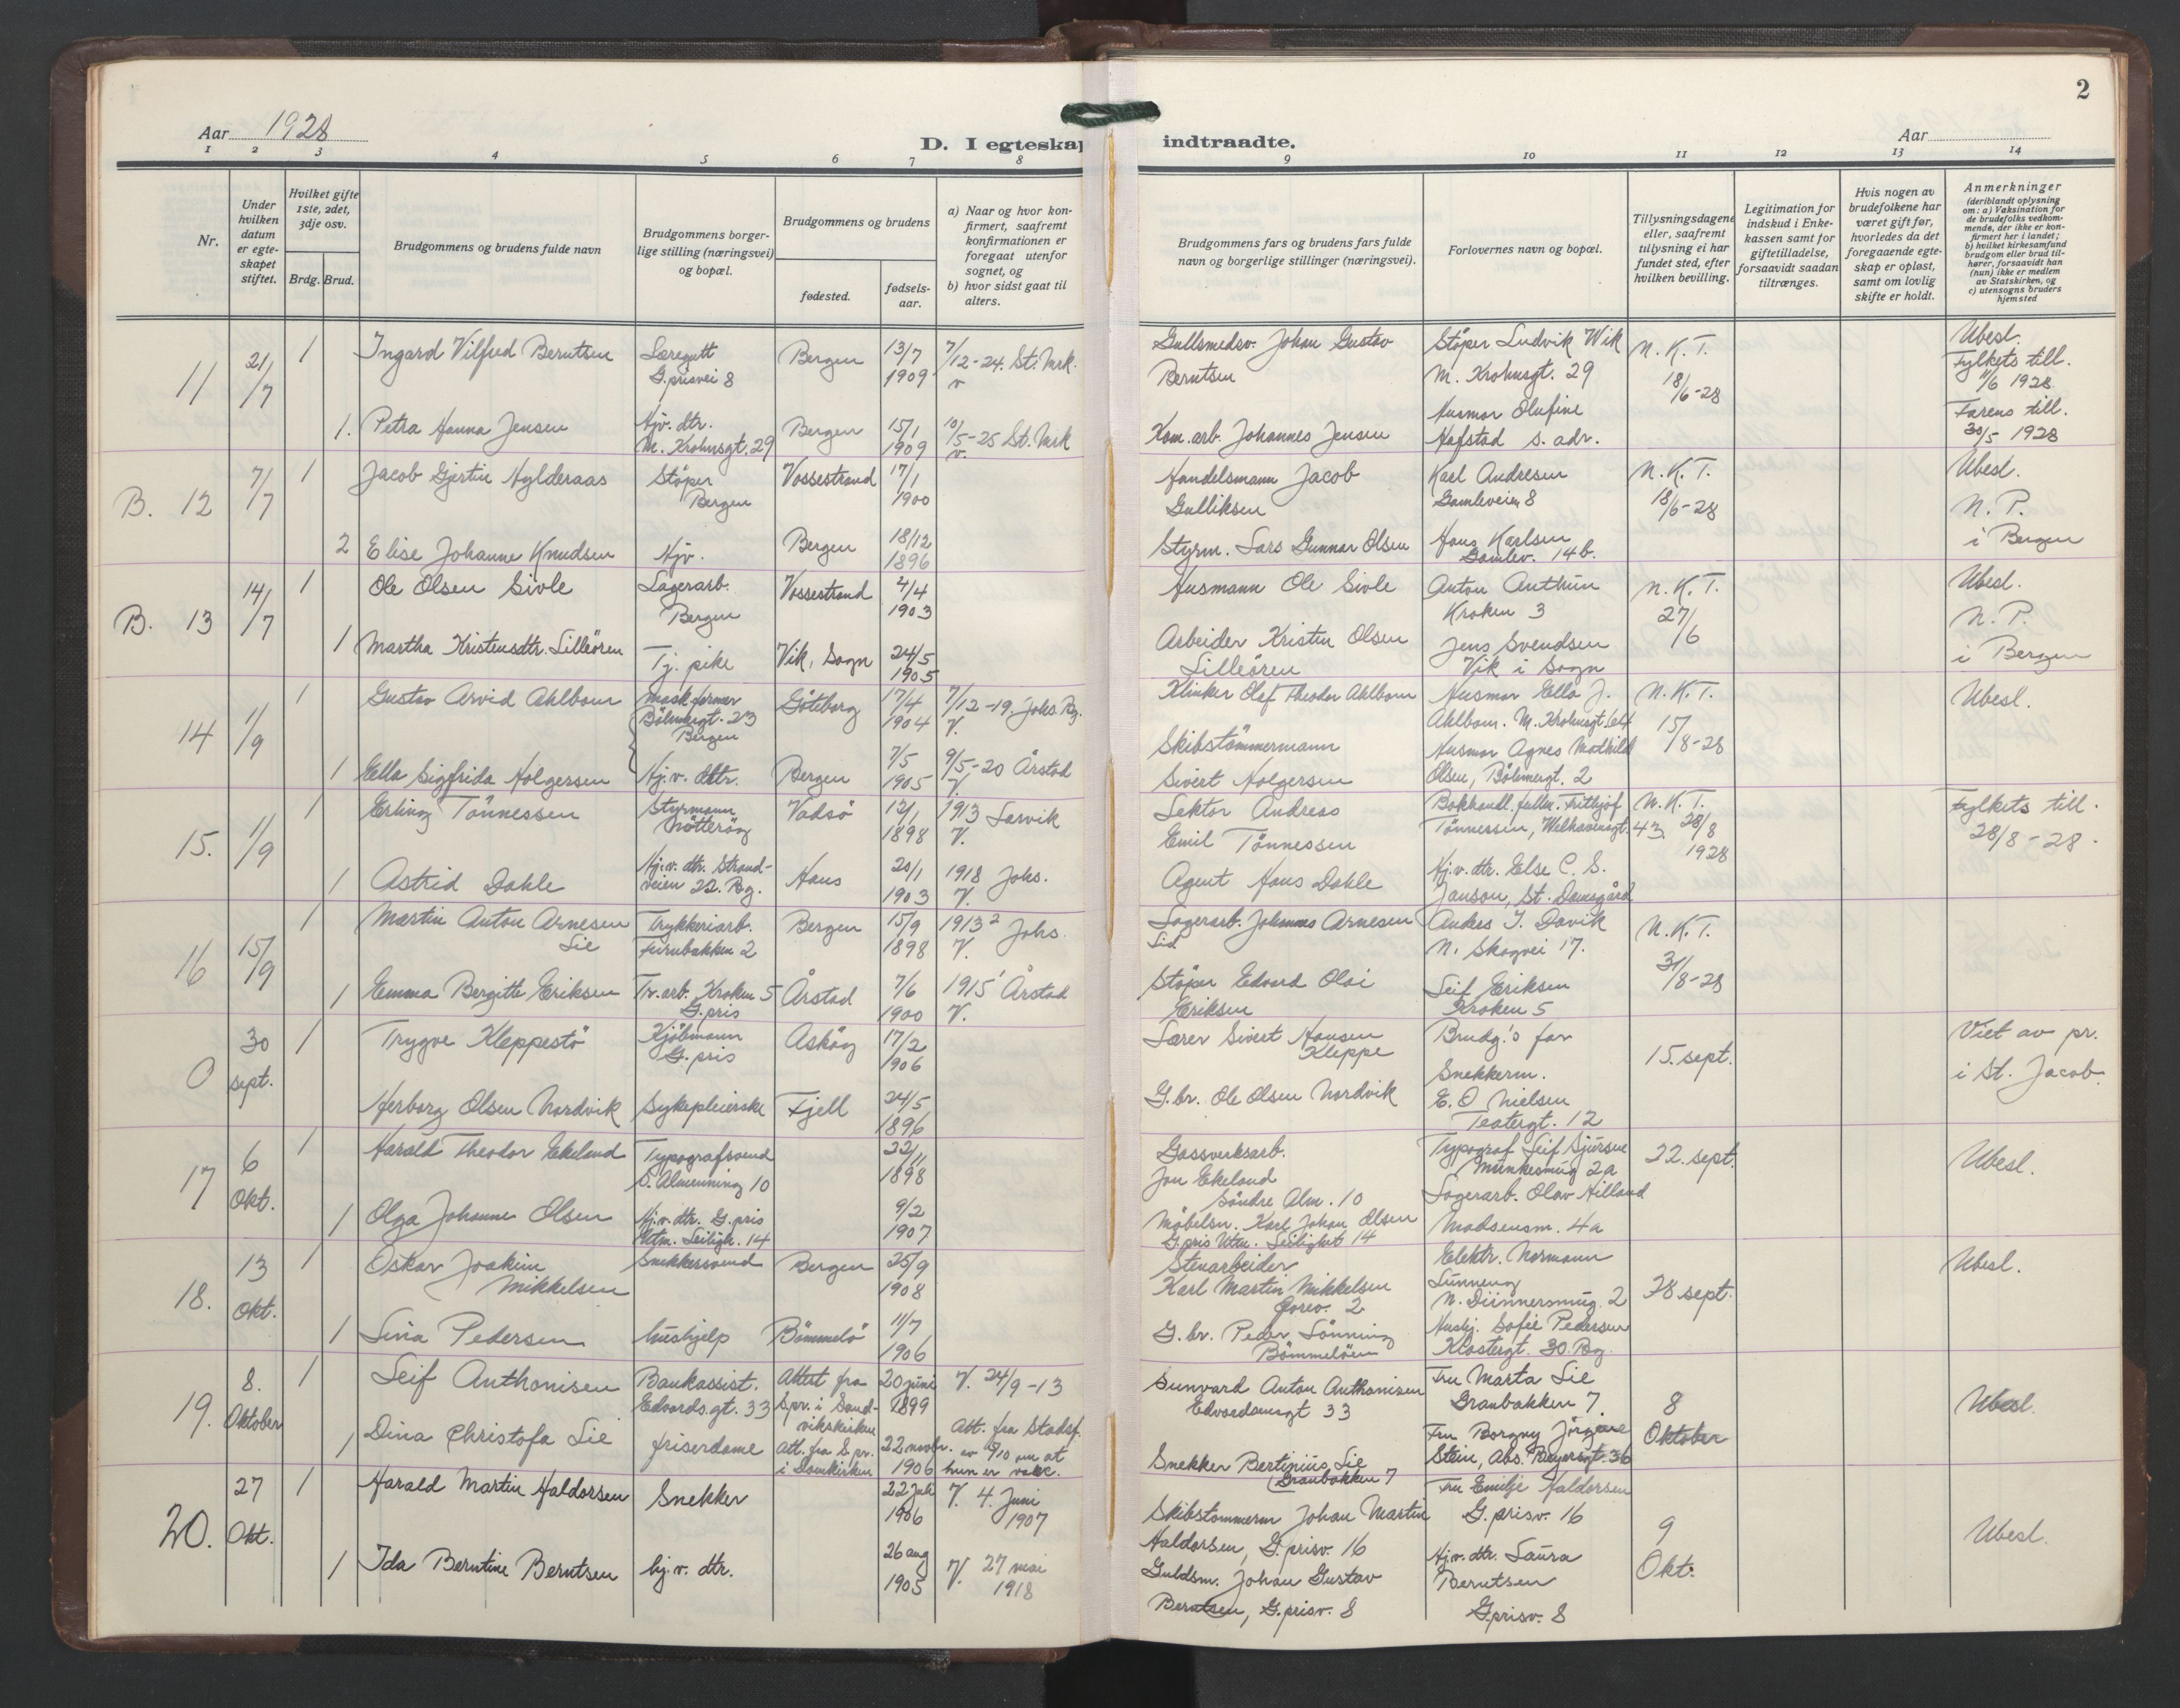 2
Aar 1928
D. I egteskap indtraadte.
Aar
1 2 3 4 5 6 7 8 9 10 11 12 13 14
Nr.
Under hvilken datum er egteskapet stiftet.
Hvilket gifte 1ste, 2det, 3dje osv.
Brdg. Brud.
Brudgommens og brudens fulde navn
Brudgommens borgerlige stilling (næringsvei) og bopæl.
Brudgommens og brudens
fødested.
fødselsaar.
a) Naar og hvor konfirmert, saafremt konfirmationen er foregaat utenfor sognet, og
b) hvor sidst gaat til alters.
Brudgommens fars og brudens fars fulde navn og borgerlige stillinger (næringsvei).
Forlovernes navn og bopæl.
Tillysningsdagene eller, saafremt tillysning ei har fundet sted, efter hvilken bevilling.
Legitimation for indskud i Enkekassen samt for giftetilladelse, forsaavidt saadan tiltrænges.
Hvis nogen av brudefolkene har været gift før, hvorledes da det foregaaende egteskap er opløst, samt om lovlig skifte er holdt.
Anmerkninger
(deriblandt oplysning om: a) Vaksination for de brudefolks vedkommende, der ikke er konfirmert her i landet; b) hvilket kirkesamfund brudgom eller brud tilhører, forsaavidt han (hun) ikke er medlem av Statskirken, og c) utensogns bruders hjemsted
11 21/7 1 Ingard Vilfred Berntsen Læregutt G.prisvei 8 Bergen 13/7 1909 7/12-24. St. Mrk. v Gullsmedsv. Johan Gustav Berntsen Støper Ludvik Wik M. Krohnsgt. 29 N.K.T. 18/6-28 Ubesl. Fylkets till. 11/6 1928
1. Petra Hanna Jensen Hjv. dtr. M. Krohnsgt. 29 Bergen 15/1 1909 10/5-25 St. Mrk v. Kom.arb. Johannes Jensen Husmor Olufine Hofstad s. adr. Farens till. 30/5 1928
B. 12 7/7 1 Jacob Gjertin Hylderaas Støper Bergen Vossestrand 17/1 1900 Handelsmann Jacob Gulliksen Karl Andresen Gamleveien 8 N.K.T. 18/6-28 Ubesl. N.P. i Bergen
2 Elise Johanne Knudsen Hjv. Bergen 18/12 1896 Styrm. Lars Gunnar Olsen Hans Karlsen Gamlev. 14b.
B. 13 14/7 1 Ole Olsen Sivle Lagerarb. Bergen Vossestrand 4/4 1903 Husmann Ole Sivle Anton Anthun Kroken 3 N.K.T. 27/6 Ubesl. N.P. i Bergen
1 Martha Kristensdtr. Lilleören Tj. pike Vik, Sogn 24/5 1905 Arbeider Kristen Olsen Lilleören Jens Svendsen Vik i Sogn
14 1/9 1 Gustav Arvid Ahlbom Maskformer Bölmergt. 23 Bergen Göteborg 17/4 1904 7/12-19. Johs. Bg. V. Klinker Olof Theodor Ahlbom Husmor Ella J. Ahlbom. M. Krohnsgt. 64 N.K.T. 15/8-28 Ubesl.
1 Ella Sigfrida Holgersen Hj.v. dttr. Bergen 7/5 1905 9/5-20 Årstad V. Skibstömmermann Sivert Holgersen Husmor Agnes Mathild Olsen, Bölmergt. 2
15. 1/9 1 Erling Tönnessen Styrmann Nötteröy Vadsö 12/1 1898 1913 Larvik V. Lektor Andreas Emil Tönnessen Bokhandl.fullm. Fritjof Tönnessen, Welhavensgt. 43 N.K.T. 28/8 1928 Fylkets till. 28/8-28.
1 Astrid Dahle Hj.v. dtr. Strandveien 22. Bg. Haus 20/1 1903 1918 Johs. V. Agent Hans Dahle Hj.v. dtr. Else C. S. Janson, St. Damsgård
16 15/9 1 Martin Anton Arnesen Lie Trykkeriarb. Furubakken 2 Bergen 15/9 1898 1913² Johs. V. Lagerarb. Johannes Arnesen Lid Anders J. Davik N. Skogvei 17. N.K.T. 31/8-28
1 Emma Bergitte Eriksen Tr.arb. Kroken 5 G.pris Årstad 7/6 1900 1915' Årstad V. Støper Edvard Olai Eriksen Leif Eriksen Kroken 5
0 30 sept. 1 Trygve Kleppestö Kjöbmann G.pris Asköy 17/2 1906 Lærer Sivert Hansen Kleppe Brudg.'s far 15. sept. Viet av pr. i St. Jacob.
Herborg Olsen Nordvik Sykepleierske Fjell 24/5 1896 G.br. Ole Olsen Nordvik Snekkerm. E. O. Nielsen Teatergt. 12
17 6 Okt. 1 Harald Theodor Ekeland Typografsvend S. Almenning 10 22/11 1898 Gassverksarb. Jon Ekeland Söndre Alm. 10 Typograf Leif Sjursen Munkesmug 2a 22. sept. Ubesl.
1 Olga Johanne Olsen Hj.v. dtr. G.pris Utm. Leiligh. 14 9/2 1907 Möbelsn. Karl Johan Olsen G.pris Utm. Leilighet 14 Lagerarb. Olav Hilland Madsensm. 4a
18. 13 Okt. 1 Oskar Joakim Mikkelsen Snekkersvend Bergen 25/9 1908 Stenarbeider Karl Martin Mikkelsen 2 Elektr. Normann Lunneng N. Dünnersmug. 2 28 sept. Ubesl.
1 Lina Pedersen hushjelp Bömmelö 11/7 1906 G.br. Peder Lönning Bömmelöen Hushj. Sofie Pedersen Klostergt. 30. Bg.
19. 8. Oktober 1 Leif Anthonisen Bankassist. Edvards.gt. 33 Attest fra Spr. i Sandvikskirken 20 juni 1899 V. 24/9-13 Sunvard Anton Anthonisen Edvardsensgt 33 Fru Marta Lie Granbakken 7. 8 Oktober Ubesl.
1 Dina Christofa Lie friserdame Att. fra S.pr. i Domkirken 22 novbr. 1906 Att. fra Stadsf. av 4/10 om at hun er vakc. Snekker Bertinius Lie Granbakken 7 Fru Borgny Jörgine Stein, Abs. Beyersgt. 36
20. 27 Okt. 1 Harald Martin Haldorsen Snekker 22 juli 1906 V. 4. Juni 1907 Skibstømmerm Johan Martin Haldorsen, G.prisv. 16 Fru Emilje Haldorsen G.prisv. 16 9 Okt. Ubesl.
1 Ida Berntine Berntsen hj.v. dtr. 26 aug 1905 V. 27 mai 1918 Guldsm. Johan Gustav Berntsen, G.prisv. 8 Hj.v. dtr. Laura Berntsen G.prisv. 8